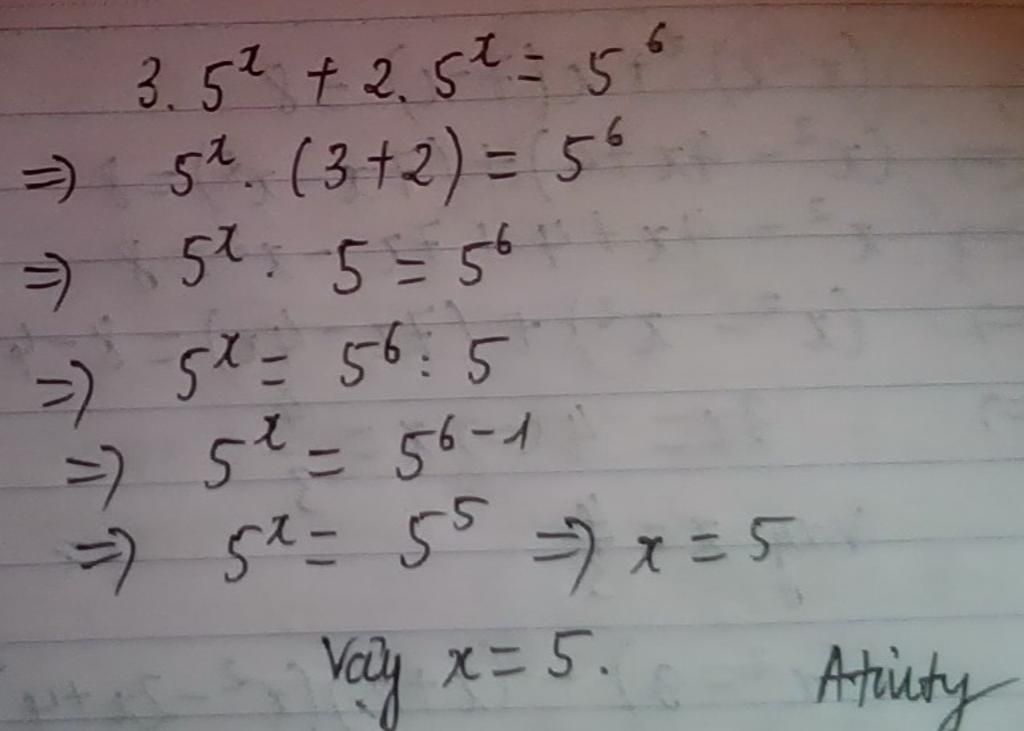 3. 5^x + 2. 5^x = 5^6
=> 5^x. (3+2) = 5^6
=> 5^x. 5 = 5^6
=> 5^x = 5^6 : 5
=> 5^x = 5^6-1
=> 5^x = 5^5 => x = 5
Vậy x = 5.